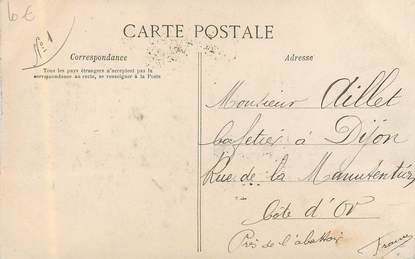 6€
CARTE POSTALE
Correspondance
Tous les pays étrangers n'acceptent pas la
correspondance au recto, se renseigner à la Poste
Adresse
Monsieur Aillet
Cafetier à Dijon
Rue de la Manutention
Côte d'Or
Près de l'abattoir
France